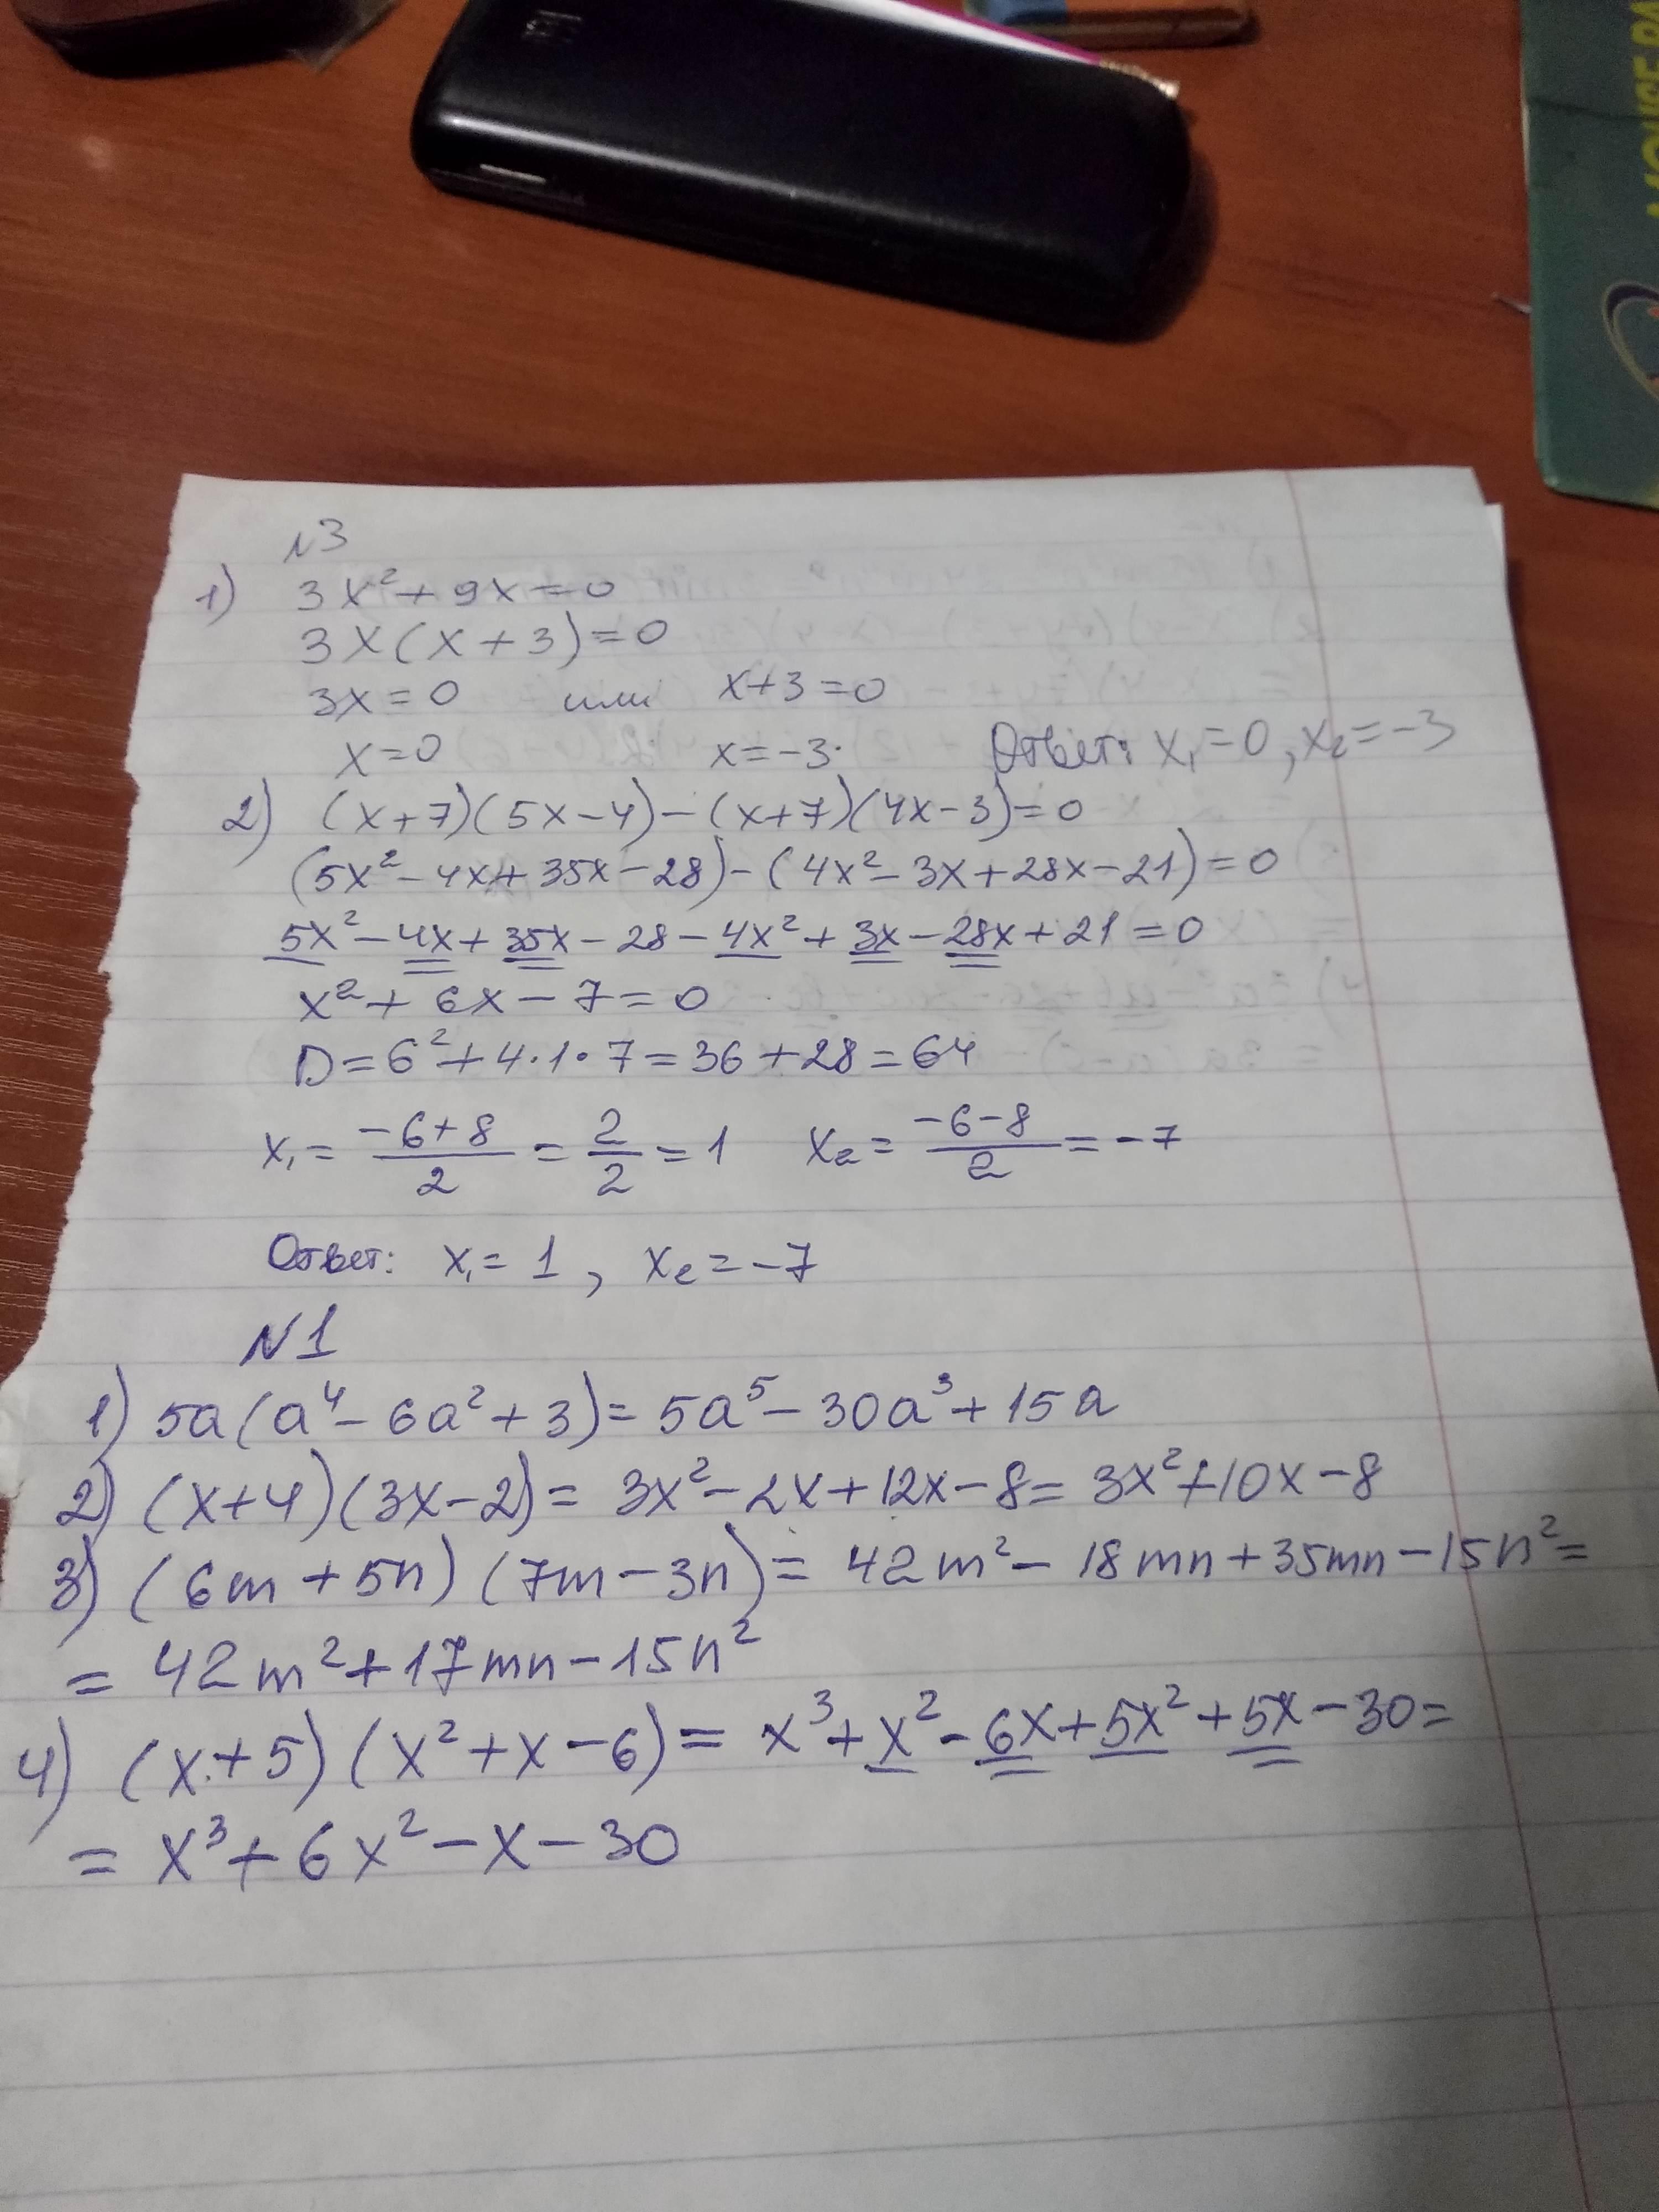 N3
1) 3x² + 9x = 0
3x(x + 3) = 0
3x = 0 или x + 3 = 0
x = 0 x = -3. Ответ: x₁ = 0, x₂ = -3
2) (x + 7)(5x - 4) - (x + 7)(4x - 3) = 0
(5x² - 4x + 35x - 28) - (4x² - 3x + 28x - 21) = 0
5x² - 4x + 35x - 28 - 4x² + 3x - 28x + 21 = 0
x² + 6x - 7 = 0
D = 6² + 4·1·7 = 36 + 28 = 64
x₁ = (-6+8)/2 = 2/2 = 1 x₂ = (-6-8)/2 = -7
Ответ: x₁ = 1, x₂ = -7
N1
1) 5a(a⁴ - 6a² + 3) = 5a⁵ - 30a³ + 15a
2) (x+4)(3x-2) = 3x² - 2x + 12x - 8 = 3x² + 10x - 8
3) (6m + 5n)(7m - 3n) = 42m² - 18mn + 35mn - 15n² =
= 42m² + 17mn - 15n²
4) (x + 5)(x² + x - 6) = x³ + x² - 6x + 5x² + 5x - 30 =
= x³ + 6x² - x - 30